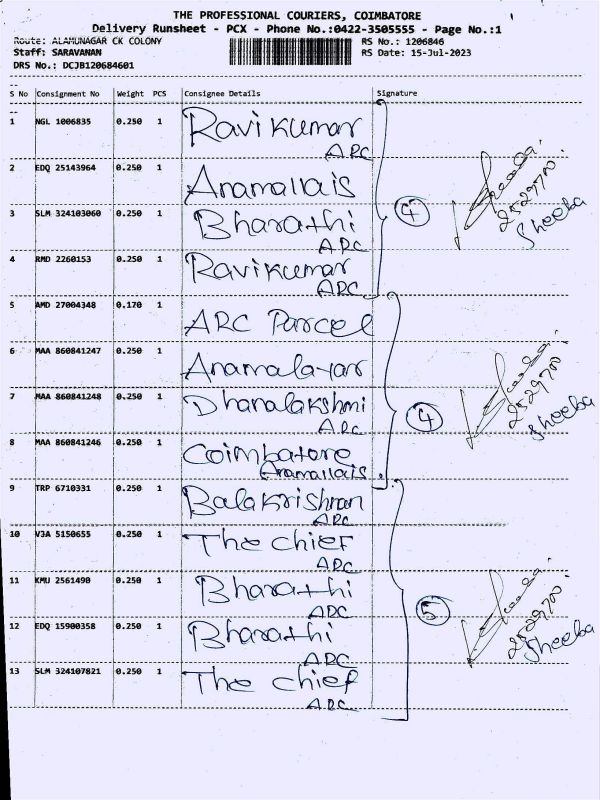 THE PROFESSIONAL COURIERS, COIMBATORE
Delivery Runsheet - PCX - Phone No.:0422-3505555 - Page No.:1
Route: ALAMUNAGAR CK COLONY RS No.: 1206846
Staff: SARAVANAN RS Date: 15-Jul-2023
DRS No.: DCJB120684601
S No Consignment No Weight PCS Consignee Details Signature
1 NGL 1006835 0.250 1 Ravikumar
ARC
2 EDQ 25143964 0.250 1 Anamallais
3 SLM 324103060 0.250 1 Bharathi
ARC
4 RMD 2260153 0.250 1 Ravikumar
ARC
4
2529700
Sheeba
5 AMD 27004348 0.170 1 ARC Parcel
6 MAA 860841247 0.250 1 Anamalayar
7 MAA 860841248 0.250 1 Dhanalakshmi
ARC
8 MAA 860841246 0.250 1 Coimbatore
Anamallais
4
2529700
Sheeba
9 TRP 6710331 0.250 1 Balakrishnan
ARC
10 V3A 5150655 0.250 1 The chief
ARC
11 KMU 2561490 0.250 1 Bharathi
ARC
12 EDQ 15900358 0.250 1 Bharathi
ARC
13 SLM 324107821 0.250 1 The chief
ARC
5
2529700
Sheeba